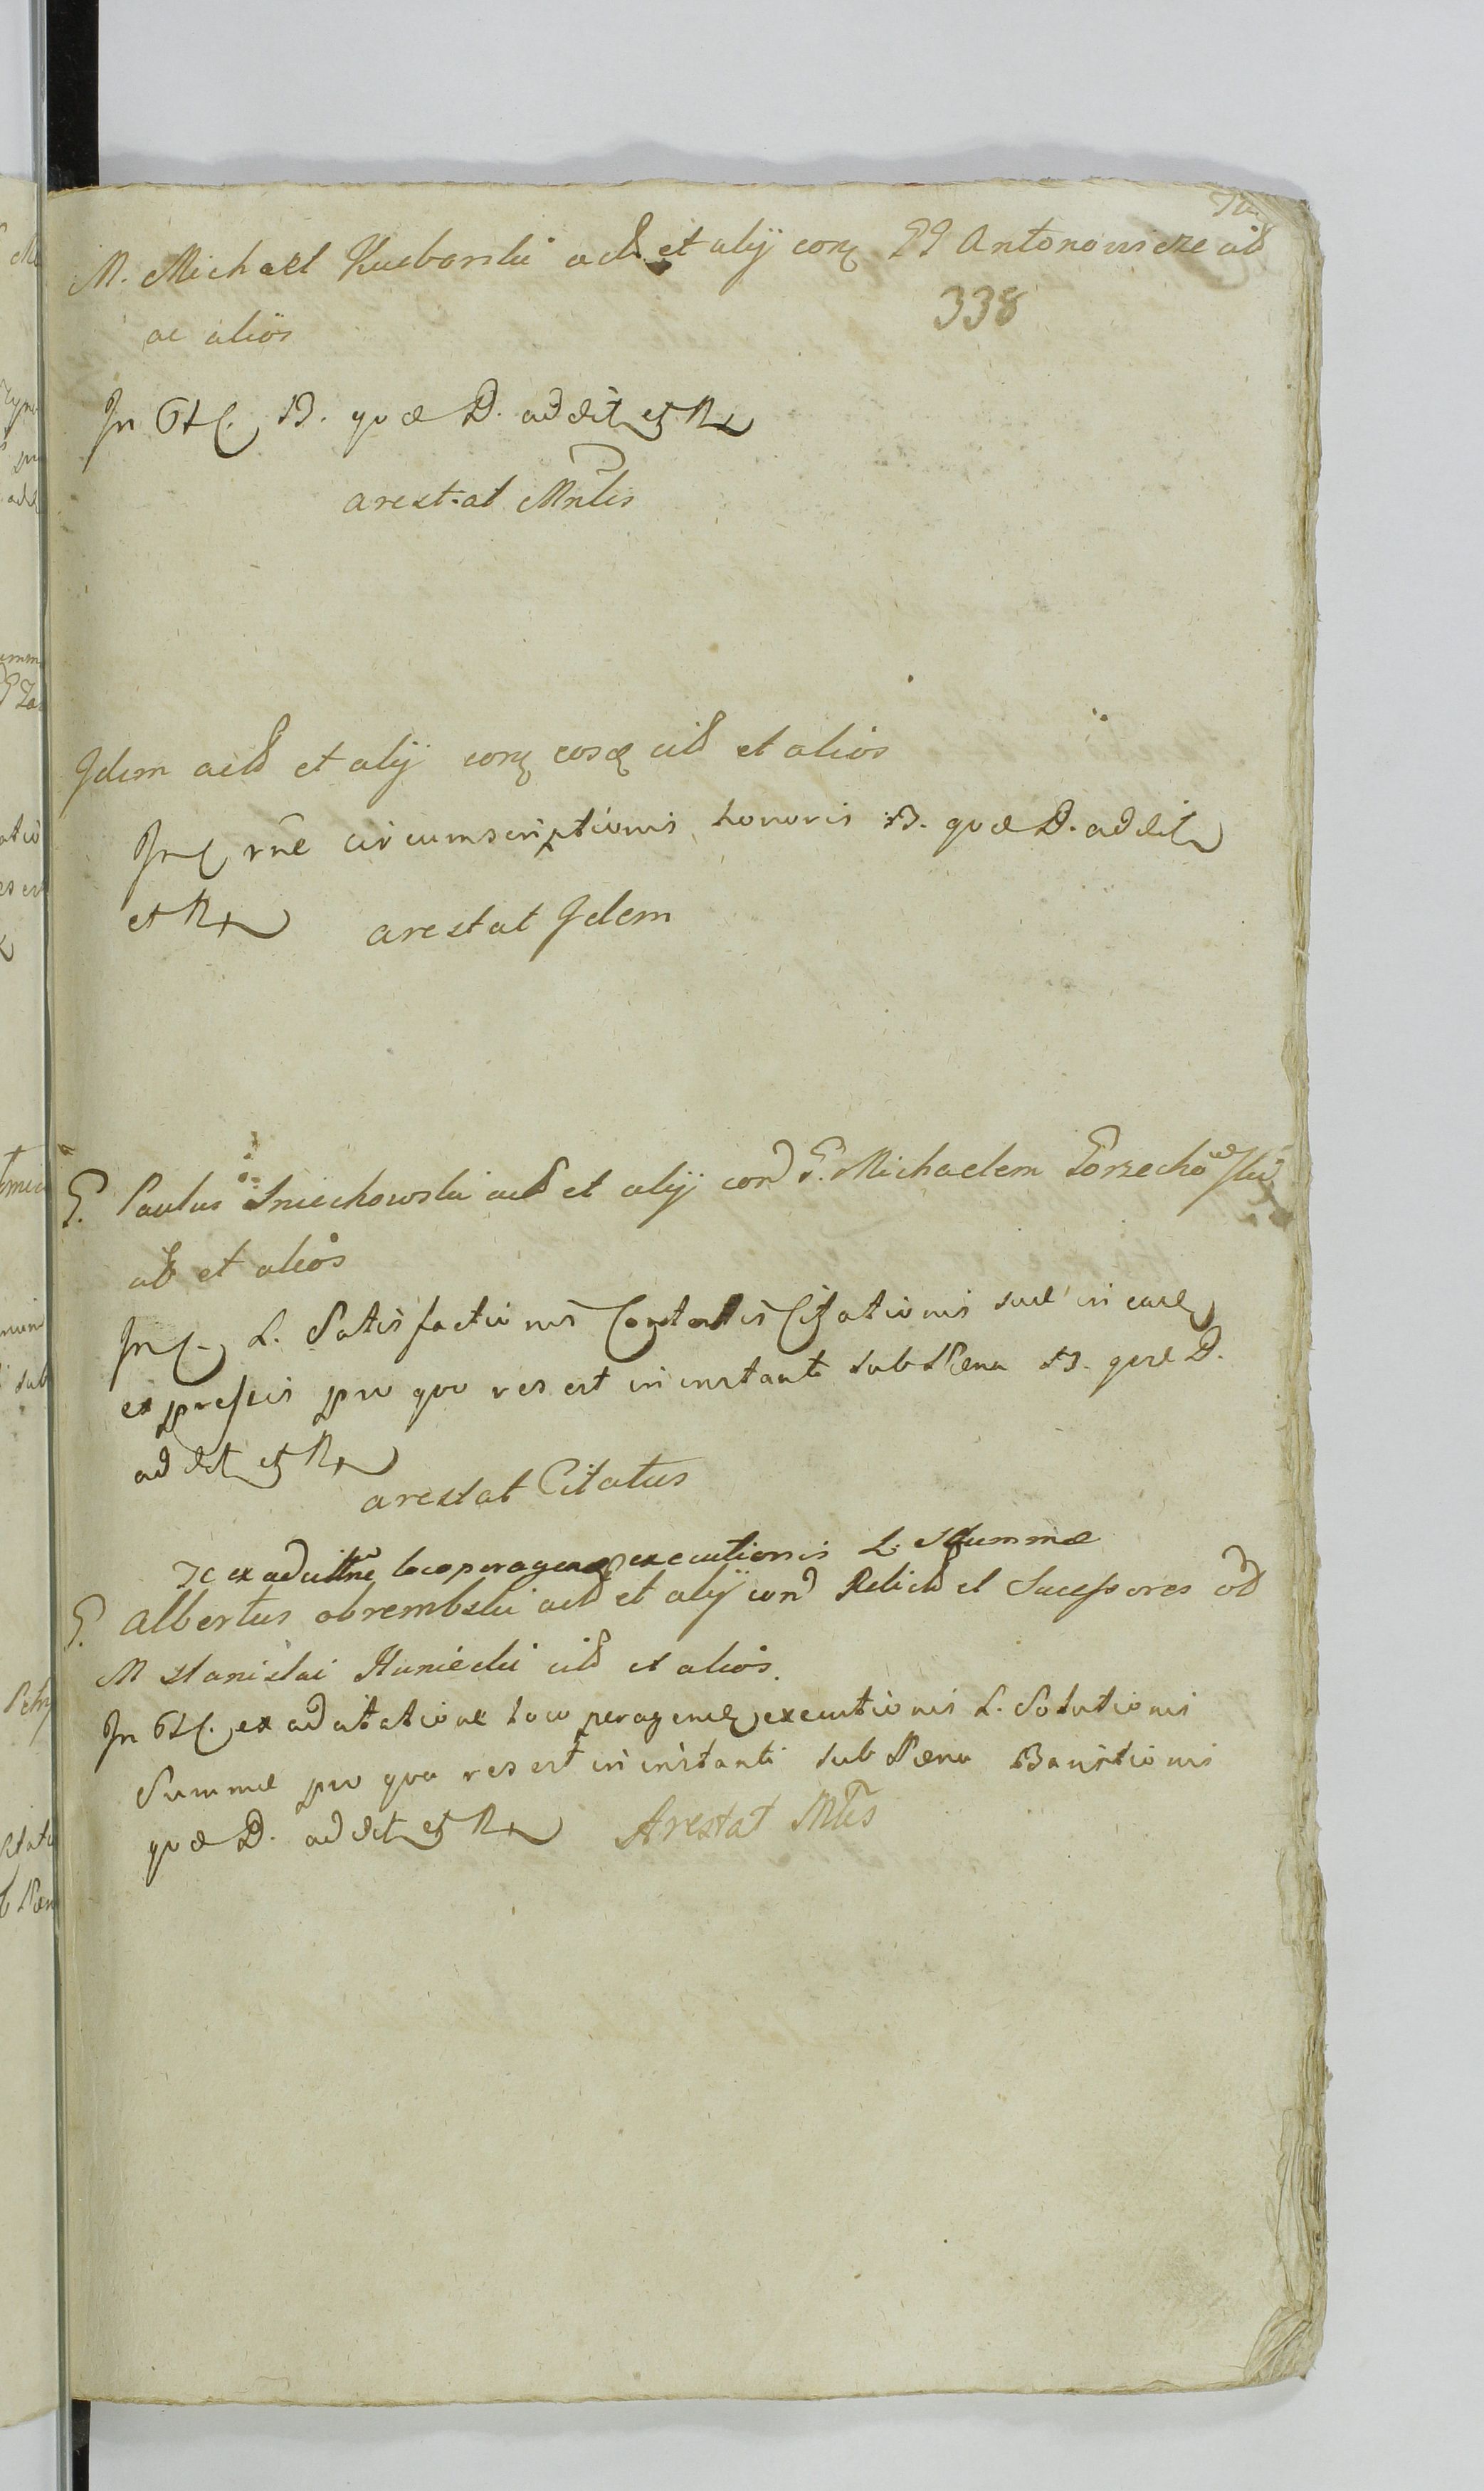 M. Michael Kueborski act et alij conq PP Antonowicze cit
338
ac alios
In C. B. quae D. addit et R
arestat Mntis
Idem act et alij conq eosq cit et alios
In C rne circumscriptionis honoris B. quae D. addit
et R arestat Idem
G. Paulus Smiechowski act et alij con G. Michaelem Gorzechowski
cit et alios
In C. L. Satisfactionis Contentis Citationis suae in eade
expressis pro quo res est in instanti sub Paena B. quae D.
addit et R
arestat Citatus
ex adcittne loco peragenae executionis L. Summae
G. Albertus Obrembski act et alij con Relict et Sucessores od
M Stanislai Kuniecki cit et alios
In C. ex adcitatione loco peragend executionis L. Solutionis
Summae pro qua res est in instanti sub Paena Banitionis
quae D. addit et R Arestat Mtis